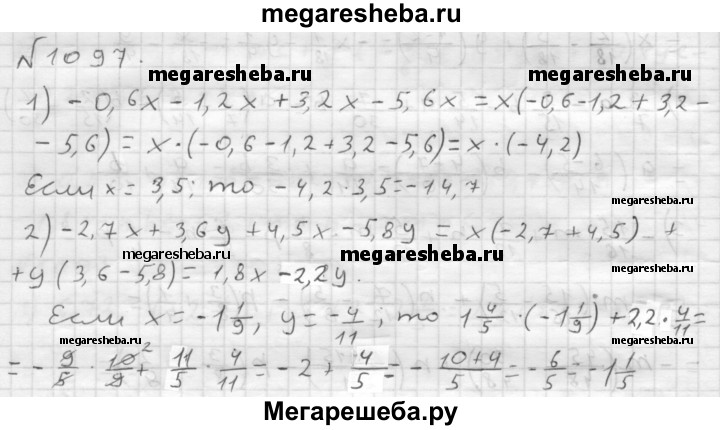 megaresheba.ru
№1097.
megaresheba.ru megaresheba.ru
1) -0,6x-1,2x+3,2x-5,6x=x(-0,6-1,2+3,2-
-5,6)=x·(-0,6-1,2+3,2-5,6)=x·(-4,2)
Если x=3,5; то -4,2·3,5=-14,7
megaresheba.ru
2) -2,7x+3,6y+4,5x-5,8y=x(-2,7+4,5)+
megaresheba.ru megaresheba.ru
+y(3,6-5,8)=1,8x-2,2y.
Если x=-1 1/9, y=-4/11; то 1 4/5·(-1 1/9)+2,2·4/11=
=-9/5·10/9+11/5·4/11=-2+4/5=-10+4/5=-6/5=-1 1/5
megaresheba.ru
Мегарешеба.ру